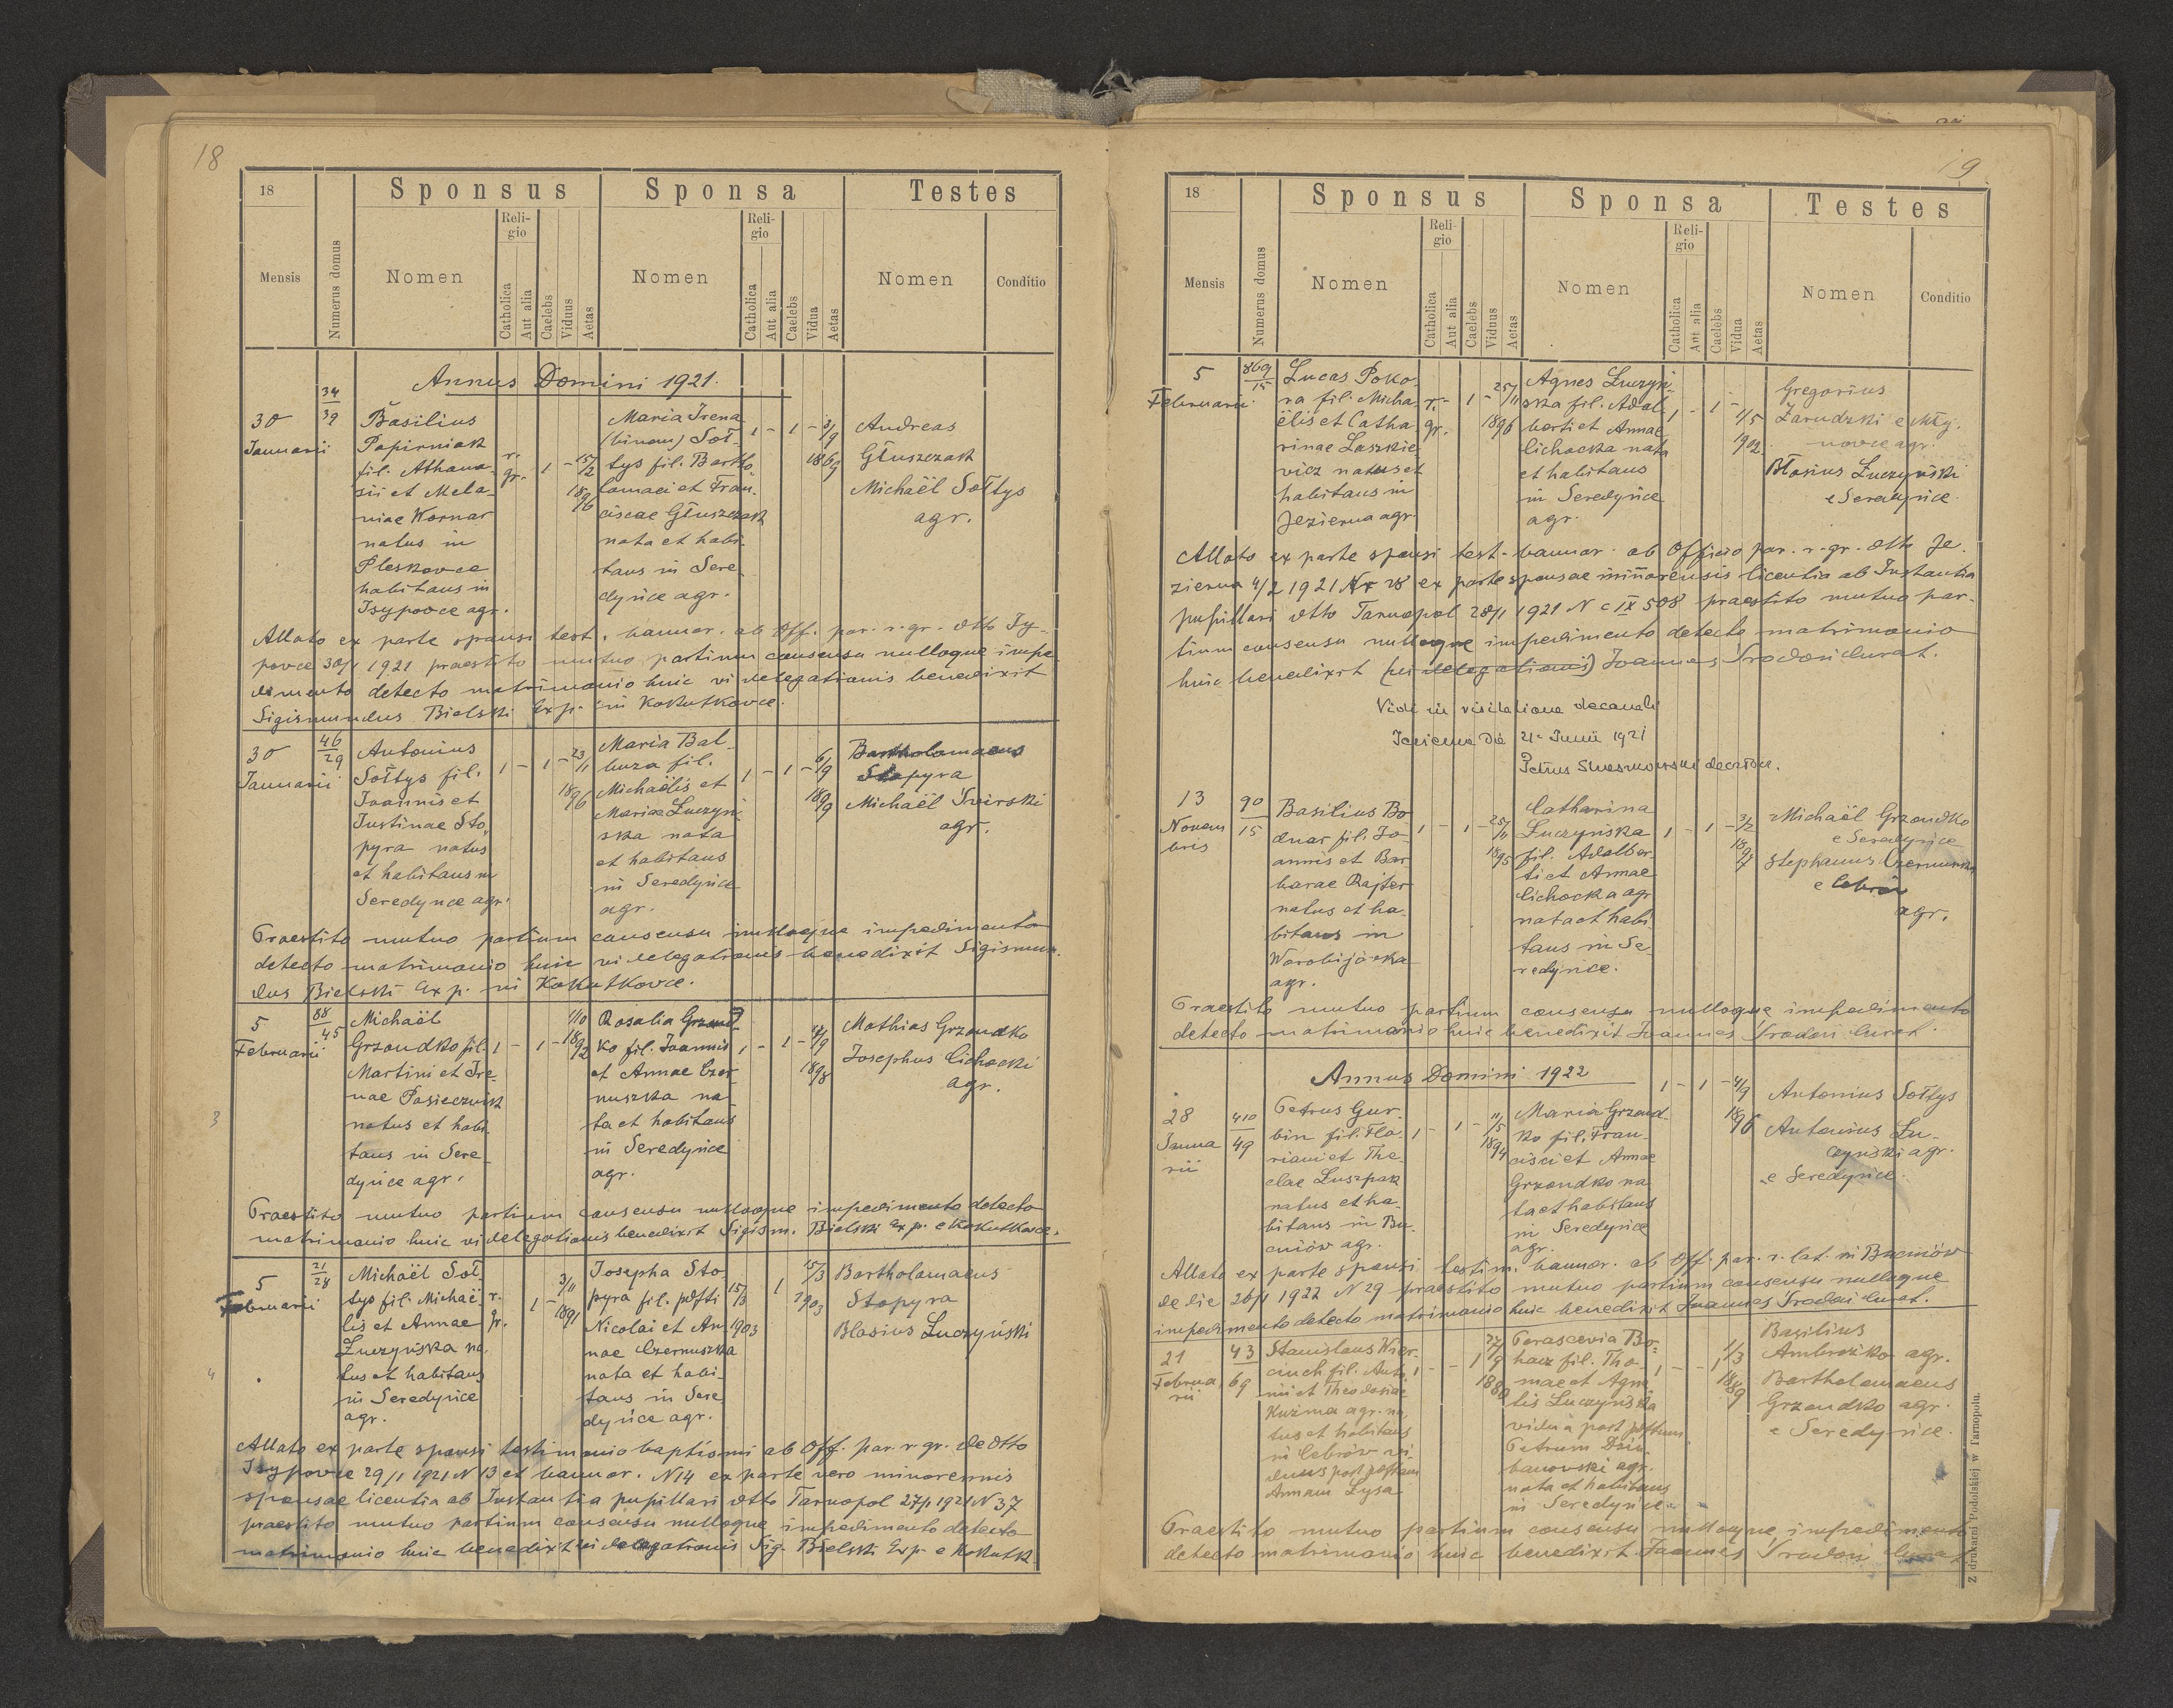 18
18
Sponsus
Sponsa
Testes
Mensis
Numerus domus
Nomen
Religio
Catholica
Aut alia
Caelebs
Viduus
Aetas
Nomen
Religio
Catholica
Aut alia
Caelebs
Vidua
Aetas
Nomen
Conditio
Annus Domini 1921.
30
Januarii
34
39
Basilius
Papierniak
fil. Athana-
sii et Mela-
niae Kornar
natus in
Pleskovce
habitans in
Isypovce agr.
r.
gr.
1 - 15/2
1896
Maria Irena
(binom) Soł-
tys fil. Bartho-
lomaei et Fran-
ciscae Głuszczak
nata et habi-
tans in Sere-
dyńce agr.
1 - 1 - 3/9
1869
Andreas
Głuszczak
Michaël Sołtys
agr.
Allato ex parte sponsi test. bannor. ab Off. par. r. gr. dtto Isy-
povce 30/1 1921 praestito mutuo partium consensu nulloque impe-
dimento detecto matrimonio huic vi delegationis benedixit
Sigismundus Bielski Exp. in Kokutkovce.
30
Januarii
46
29
Antonius
Sołtys fil.
Joannis et
Justinae Sto-
pyra natus
et habitans in
Seredynce agr.
1 - 1 - 23/11
1896
Maria Bal-
buza fil.
Michaëlis et
Mariae Łuczyń-
ska nata
et habitans
in Seredyńce
agr.
1 - 1 - 6/9
1899
Bartholomaeus
Stopyra
Michaël Świrski
agr.
Praestito mutuo partium consensu nulloque impedimento
detecto matrimonio huic vi delegationis benedixit Sigismun-
dus Bielski Exp. in Kokutkovce.
5
Februarii
88
45
Michaël
Grzondko fil.
Martini et Ire-
nae Pasiecznik
natus et habi-
tans in Sere-
dyńce agr.
1 - 1 - 1/10
1892
Rosalia Grzond-
ko fil. Joannis
et Annae Czer-
nuszka na-
ta et habitans
in Seredyńce
agr.
1 - 1 - 4/9
1898
Mathias Grzondko
Josephus Cichocki
agr.
3
Praestito mutuo partium consensu nulloque impedimento detecto
matrimonio huic vi delegationis benedixit Sigism. Bielski Exp. e Kokutkovce.
5
Februarii
21
28
Michaël Soł-
tys fil. Michaë-
lis et Annae
Łuczyńska na-
tus et habitans
in Seredyńce
agr.
r.
gr.
1 - 3/11
1891
Josepha Sto-
pyra fil. pdfti
Nicolai et An-
nae Czernuszka
nata et habi-
tans in Sere-
dyńce agr.
15/3
1903
1
15/3
1903
Bartholomaeus
Stopyra
Blasius Łuczyński
4
Allato ex parte sponsi testimonio baptismi ab Off. par. r. gr. de dtto
Isypovce 29/1 1921 N 13 et bannor. N14 ex parte vero minorennis
sponsae licentia ab Instantia pupillari dtto Tarnopol 27/1 1921 N 37
praestito mutuo partium consensu nulloque impedimento detecto
matrimonio huic benedixit vi delegationis Sig. Bielski Exp. e Kokutk.
19
18
Sponsus
Sponsa
Testes
Mensis
Numerus domus
Nomen
Religio
Catholica
Aut alia
Caelebs
Viduus
Aetas
Nomen
Religio
Catholica
Aut alia
Caelebs
Vidua
Aetas
Nomen
Conditio
5
Februarii
869
15
Lucas Poko-
ra fil. Micha-
ëlis et Catha-
rinae Laszkie-
vicz natus et
habitans in
Jezierna agr.
r. -
gr.
1 - 25/11
1896
Agnes Łuczyń-
ska fil. Adal-
berti et Annae
Cichocka nata
et habitans
in Seredyńce
agr.
1 - 1 -
1/5
1902
Gregorius
Zarudzki
novce agr.
Błasius Łuczyński
e Seredyńce.
Allato ex parte sponsi test. bannor. ab Officio par. r. gr. dtto Je-
zierna 4/2 1921 Nr 28 ex parte sponsae minorensis licentia ab Instantia
pupillari dtto Tarnopol 28/1 1921 N c IX 508 praestito mutuo par-
tium consensu nulloque impedimento detecto matrimonio
huic benedixit (vi delegationis) Joannes Srodoń Curat.
Vidi in visitatione decanali
Jezierna die 21. Junii 1921
Petrus
13
Novem
bris
90
15
Basilius Bo-
dnar fil. Jo-
annis et Bar-
barae Rajter
natus et ha-
bitans in
Worobijówka
agr.
1 - 1 - 25/11
1895
Catharina
Łuczyńska
fil. Adalber-
ti et Annae
Cichocka agr
nata et habi-
tans in Se-
redyńce.
1 - 1 - 3/2
Michaël Grzondko
e Seredyńce
Stephanus Czernuszka
e Cebrów
agr.
Praestito mutuo partium consensu nulloque impedimento
detecto matrimonio huic benedixit Joannes Srodoń Curat.
Annus Domini 1922
28
Janua
rii
410
49
Petrus Gur-
bin fil. Flo-
riani et The-
clae Łuszpak
natus et ha-
bitans in Bu-
cniów agr.
1 - 1 - 11/5
1894
Maria Grzond-
ko fil. Fran-
cisci et Annae
Grzondko na-
ta et habitans
in Seredyńce
agr.
1 - 1 - 4/9
1896
Antonius Sołtys
Antonius Łu-
czyński agr.
e Seredyńce.
Allato ex parte sponsi testim. bannor. ab Off. par. r. lat. in Bucniów
de die 26/1 1922 N 29 praestito mutuo partium consensu nulloque
impedimento detecto matrimonio huic benedixit Joannes Srodoń Curat.
21
Februa
rii
43
69
Stanislaus Wier-
ciuch fil. Anto-
nii et Theodosiae
Kuźma agr. na-
tus et habitans
in Cebrów vi-
duus post pdftam
Annam Łysa
1 - - 1 27/9
1880
Parascevia Bo-
hacz fil. Tho-
mae et Agne-
tis Łuczyńska
vidua post pdftum
Petrum Dziu-
banovski agr.
nata et habitans
in Seredyńce
1 - - 1 1/3
1889
Basilius
Ambroźko agr.
Bartholomaeus
Grzondko agr.
e Seredyńce.
Praestito mutuo partium consensu nulloque impedimento
detecto matrimonio huic benedixit Joannes Srodoń Curat
Z drukarni Podolskiej w Tarnopolu.